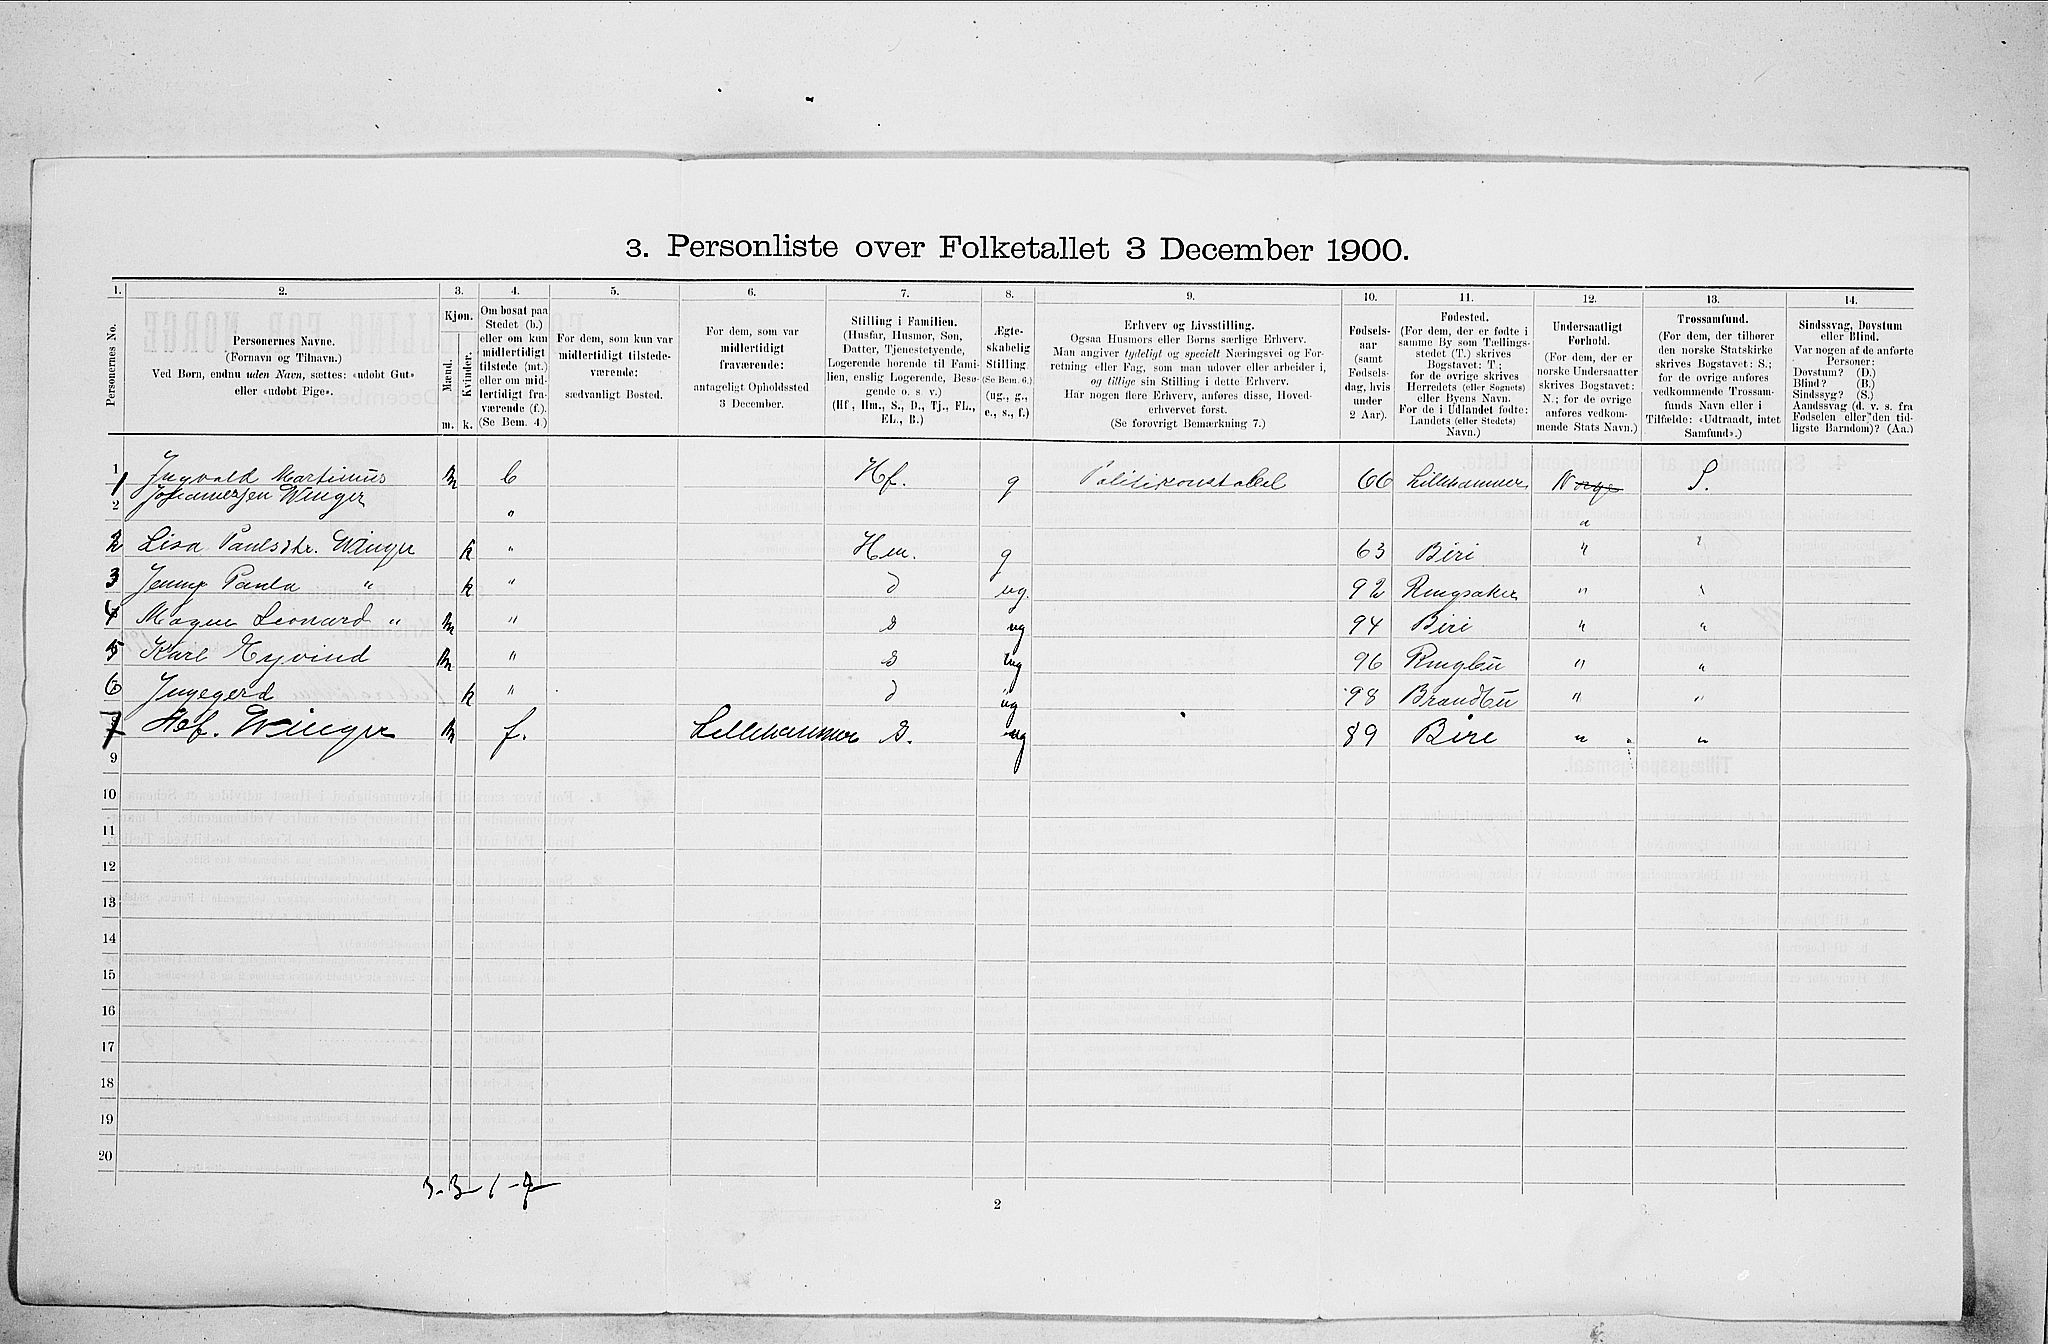 3. Personliste over Folketallet 3 December 1900.
1. 2. 3. 4. 5. 6. 7. 8. 9. 10. 11. 12. 13. 14.
Personernes No.
Personernes Navne.
(Fornavn og Tilnavn.)
Ved Børn, endnu uden Navn, sættes: «udøbt Gut»
eller «udøbt Pige».
Kjøn.
Mænd. Kvinder.
m. k.
Om bosat paa
Stedet (b.)
eller om kun
midlertidigt
tilstede (mt.)
eller om mid-
lertidigt fra-
værende (f.).
(Se Bem. 4.)
For dem, som kun var
midlertidigt tilstede-
værende:
sædvanligt Bosted.
For dem, som var
midlertidigt
fraværende:
antageligt Opholdssted
3 December.
Stilling i Familien.
(Husfar, Husmor, Søn,
Datter, Tjenestetyende,
Logerende hørende til Fami-
lien, enslig Logerende, Besø-
gende o. s. v.)
(Hf., Hm., S., D., Tj., FL.,
EL., B.)
Ægte-
skabelig
Stilling
(Se Bem. 6.)
(ug., g.,
e., s., f.)
Erhverv og Livsstilling.
Ogsaa Husmors eller Børns særlige Erhverv.
Man angiver tydeligt og specielt Næringsvei og For-
retning eller Fag, som man udøver eller arbeider i,
og tillige sin Stilling i dette Erhverv.
Har nogen flere Erhverv, anføres disse, Hoved-
erhvervet først.
(Se forøvrigt Bemærkning 7.)
Fødsels-
aar
(samt
Fødsels-
dag, hvis
under
2 Aar).
Fødested.
(For dem, der er fødte i
samme By som Tællings-
stedet (T.) skrives
Bogstavet: T;
for de øvrige skrives
Herredets (eller Sognets)
eller Byens Navn.
For de i Udlandet fødte:
Landets (eller Stedets)
Navn.)
Undersaatligt
Forhold.
(For dem, der er
norske Undersaatter
skrives Bogstavet:
N.; for de øvrige
anføres vedkom-
mende Stats Navn.)
Trossamfund.
(For dem, der tilhører
den norske Statskirke
skrives Bogstavet: S.;
for de øvrige anføres
vedkommende Trossam-
funds Navn eller i
Tilfælde: «Udtraadt, intet
Samfund».)
Sindssvag, Døvstum
eller Blind.
Var nogen af de anførte
Personer:
Døvstum? (D.)
Blind? (B.)
Sindssyg? (S.)
Aandssvag (d. v. s. fra
Fødselen eller den tid-
ligste Barndom)? (Aa.)
1 1 Ingvald Martinius m b Hf. g Politikonstabel 66 Lillehammer Norge S.
2 Johannessen Winger " "
2 Lisa Paulsdtr. Winger k " Hm. g 63 Biri " "
3 Jenny Paula " k " d ug. 92 Ringsaker " "
4 Magne Leonard " m " s ug 94 Biri " "
5 Karl Eyvind m " s ug 96 Ringbu " "
6 Ingegerd k " d ug 98 Brandbu " "
7 Alf. Winger m f. Lillehammer s. ug 89 Biri " "
9
10
11
12
13
14
15
16
17
18
19
20
2